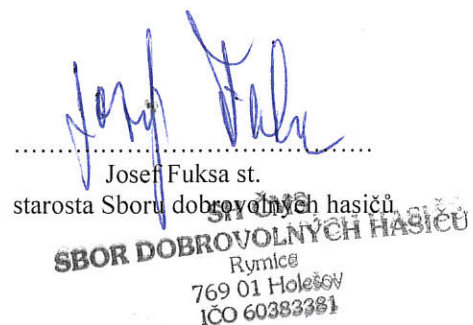 Josef Fuksa
....................................................
Josef Fuksa st.
starosta Sboru dobrovolných hasičů
SH ČMS
SBOR DOBROVOLNÝCH HASIČŮ
Rymice
769 01 Holešov
IČO 60383381